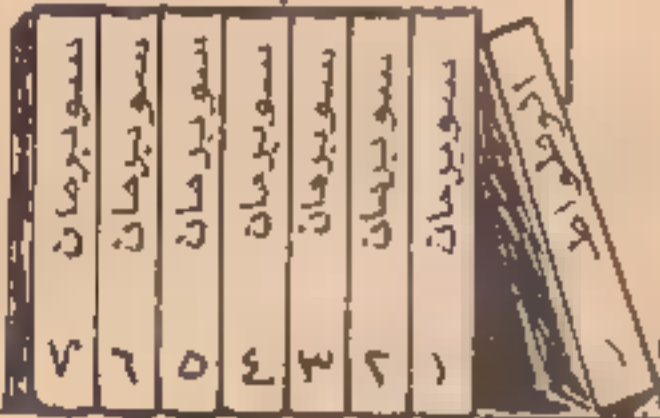 سوبرمان ١
سوبرمان ٢
سوبرمان ٣
سوبرمان ٤
سوبرمان ٥
سوبرمان ٦
سوبرمان ٧
١